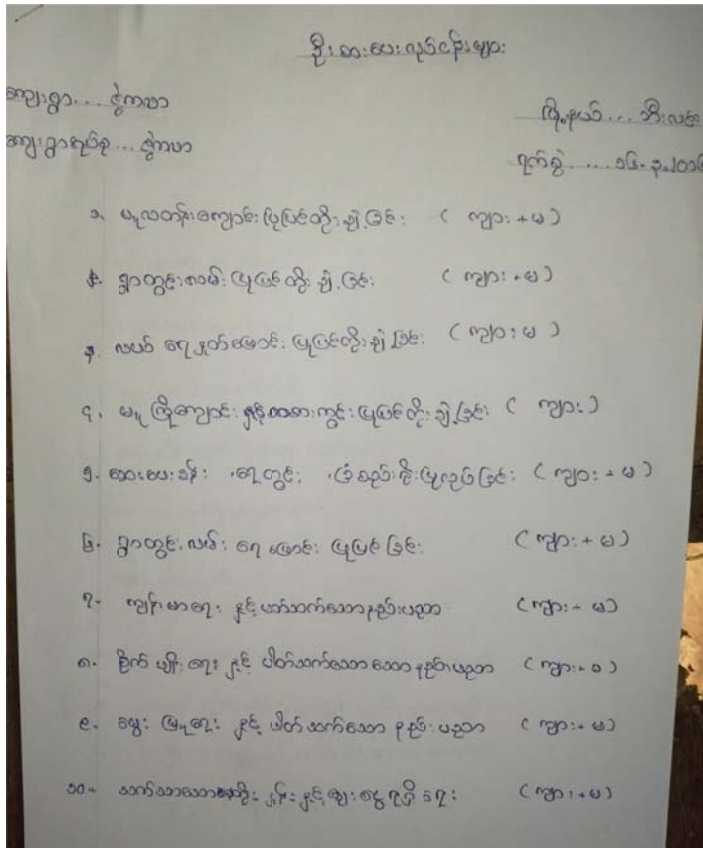 ဦးစားပေးလုပ်ငန်းများ
ကျေးရွာ... ဇွဲကဟာ
မြို့နယ်... ဘီးလင်း
ကျေးရွာအုပ်စု... ဇွဲကဟာ
ရက်စွဲ .....
၁. မူလတန်းကျောင်းပြုပြင်တိုးချဲ့ခြင်း ( ကျား + မ )
၂. ရွာတွင်းလမ်းပြုပြင်တိုးချဲ့ခြင်း ( ကျား + မ )
၃. လယ် ရေနုတ်မြောင်းပြုပြင်တိုးချဲ့ခြင်း ( ကျား မ )
၄. မူကြိုကျောင်း နှင့်ကစားကွင်းပြုပြင်တိုးချဲ့ခြင်း ( ကျား )
၅. ဆေးပေးခန်း ရေတွင်း ခြံစည်းရိုးပြုလုပ်ခြင်း ( ကျား + မ )
၆. ရွာတွင်းလမ်း ရေမြောင်းပြုပြင်ခြင်း ( ကျား + မ )
၇. ကျန်းမာရေး နှင့်ပတ်သက်သောနည်းပညာ ( ကျား + မ )
၈. စိုက်ပျိုးရေး နှင့် ပါတ်သက်သော သောနည်းပညာ ( ကျား + မ )
၉. မွေးမြူရေး နှင့် ပါတ်သက်သော နည်းပညာ ( ကျား + မ )
၁၀. သက်သာသောအတိုးနှုန်းနှင့်ချေးငွေရရှိရေး ( ကျား + မ )